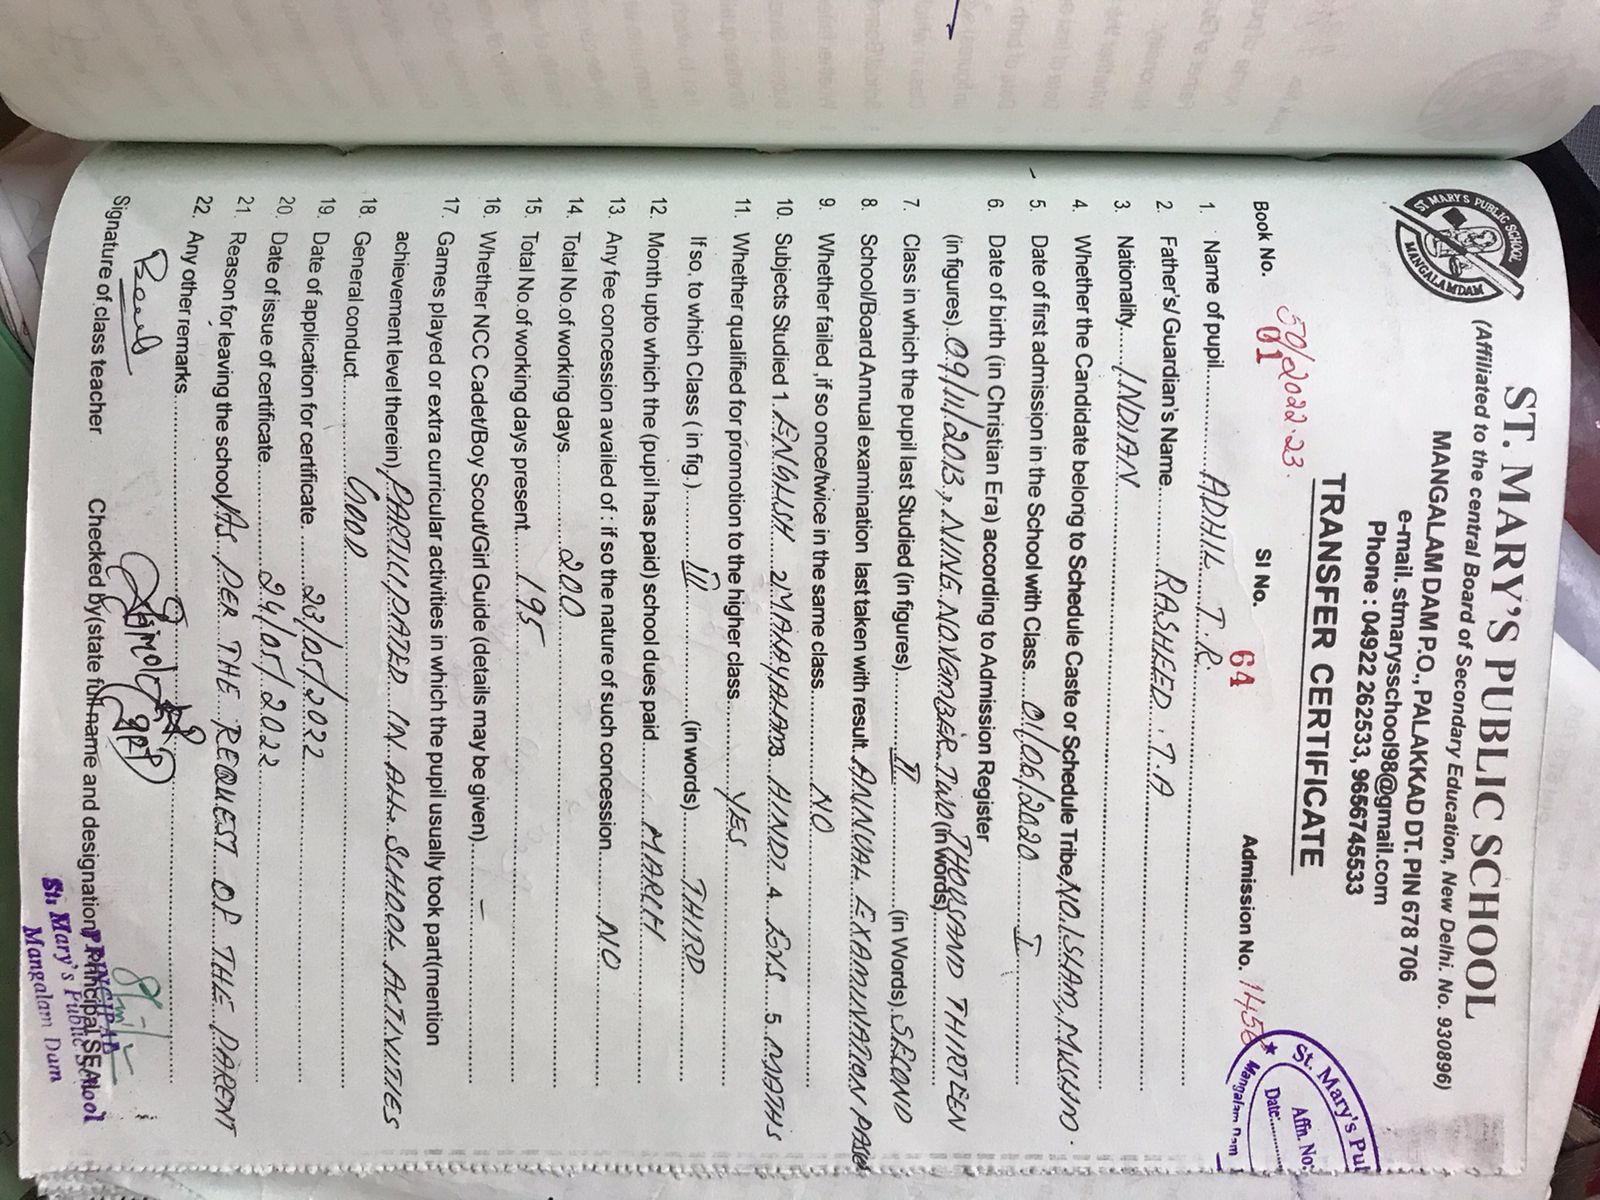 ST. MARY'S PUBLIC SCHOOL
(Affiliated to the central Board of Secondary Education, New Delhi. No. 930896)
MANGALAM DAM P.O., PALAKKAD DT. PIN 678 706
e-mail. stmarysschool98@gmail.com
Phone : 04922 262533, 9656745533
ST MARY'S PUBLIC SCHOOL
MANGALAMDAM
TRANSFER CERTIFICATE
50/2022-23
Book No. 01 Sl No. 64 Admission No.
St. Mary's Pu
Affn. No:
Date:
Mangalam Dam
1. Name of pupil ADHIL T.R.
2. Father's/ Guardian's Name RASHEED.T.A
3. Nationality INDIAN
4. Whether the Candidate belong to Schedule Caste or Schedule Tribe NO.ISLAM, MUSLIM.
5. Date of first admission in the School with Class. 01/06/2020 I
6. Date of birth (in Christian Era) according to Admission Register
(in figures). 09/11/2013, NINE NOVEMBER TWO (in words) THOUSAND THIRTEEN
7. Class in which the pupil last Studied (in figures) II (in Words) SECOND
8. School/Board Annual examination last taken with result ANNUAL EXAMINATION PASSED
9. Whether failed ,if so once/twice in the same class NO
10. Subjects Studied 1. ENGLISH 2. MALAYALAM 3. HINDI 4. EVS 5. MATHS
11. Whether qualified for promotion to the higher class YES
If so, to which Class ( in fig.) III (in words) THIRD
12. Month upto which the (pupil has paid) school dues paid MARCH
13. Any fee concession availed of : if so the nature of such concession NO
14. Total No.of working days 200
15. Total No.of working days present 195
16. Whether NCC Cadet/Boy Scout/Girl Guide (details may be given) -
17. Games played or extra curricular activities in which the pupil usually took part(mention
achievement level therein) PARTICIPATED IN ALL SCHOOL ACTIVITIES
18. General conduct GOOD
19. Date of application for certificate. 23/05/2022
20. Date of issue of certificate 24/05/2022
21. Reason for leaving the school AS PER THE REQUEST OF THE PARENT
22. Any other remarks
Signature of class teacher Checked by(state full name and designation) Principal SEAL
PRINCIPAL
St. Mary's Public School
Mangalam Dam